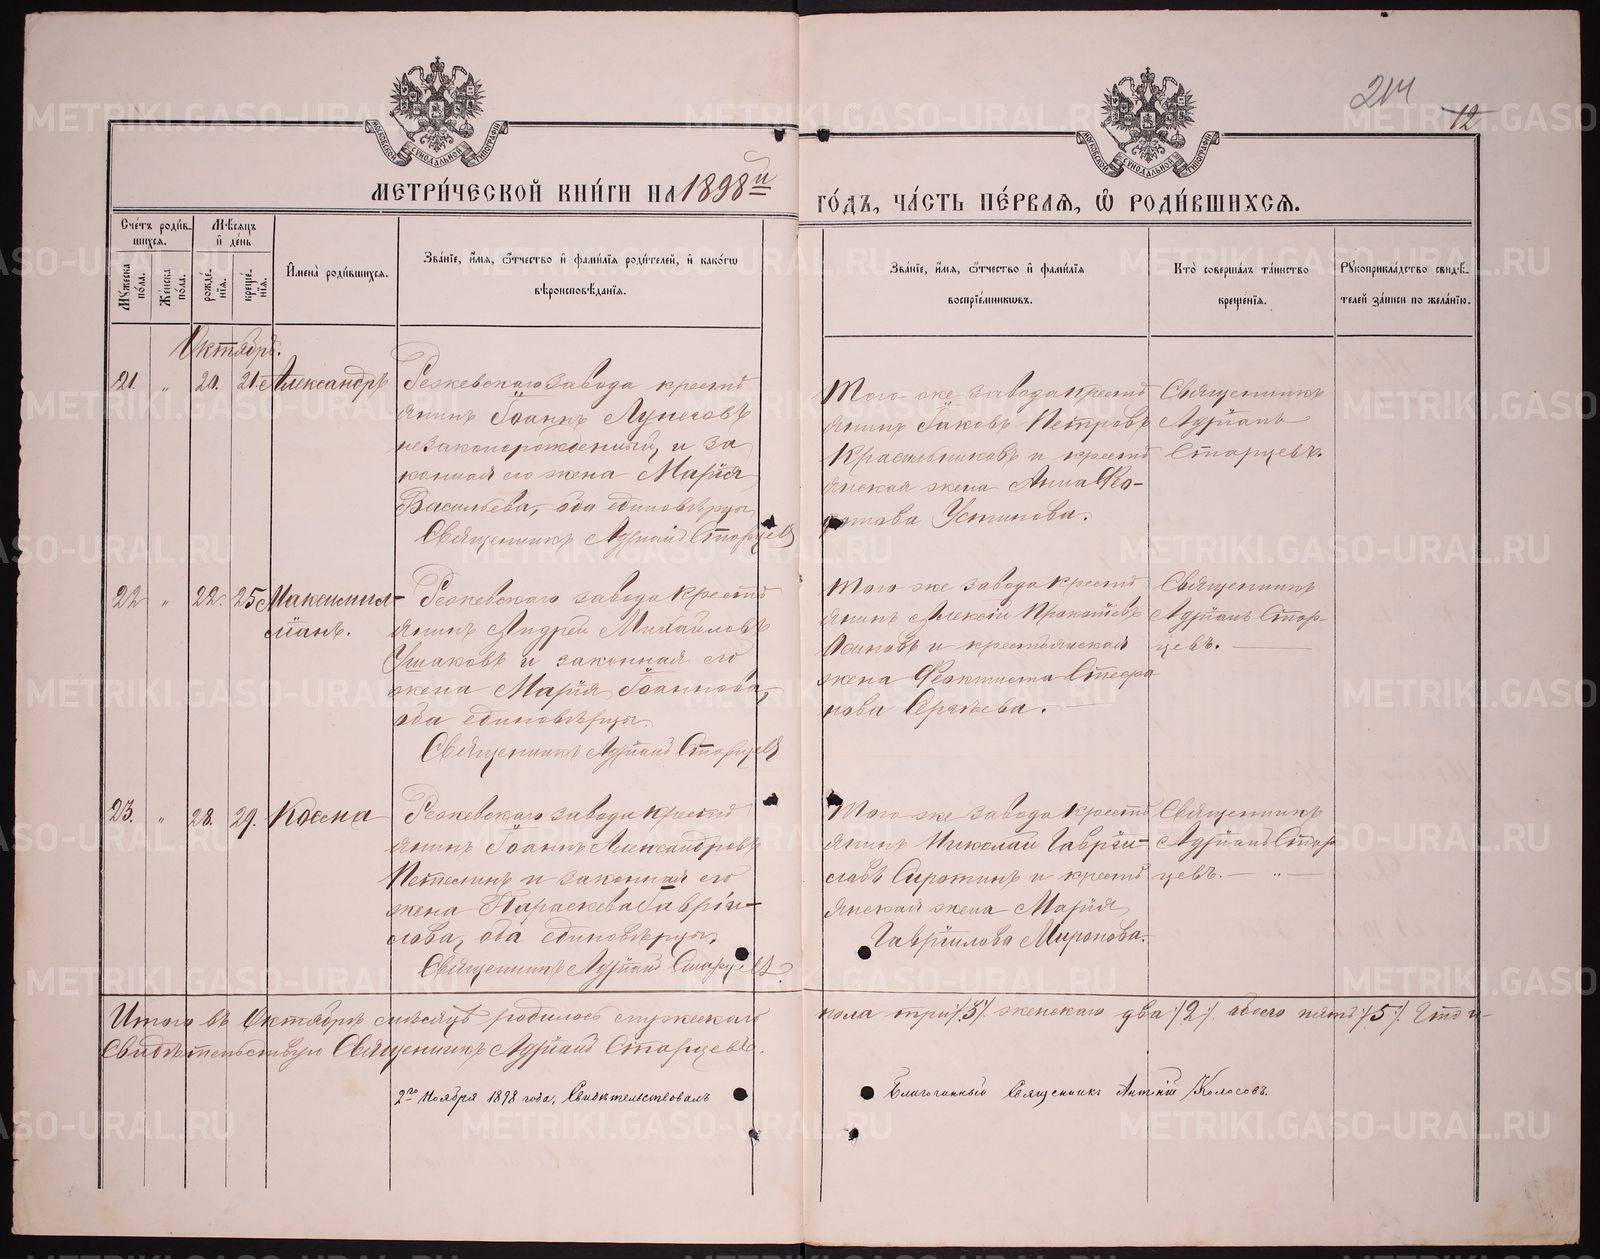 214
12
МОСКОВСКОЙ СѴНОДАЛЬНОЙ ТИПОГРАФІИ
МОСКОВСКОЙ СѴНОДАЛЬНОЙ ТИПОГРАФІИ
МЕТРИ́ЧЕСКОЙ КНИ́ГИ НА 1898й
ГО́ДЪ, ЧА́СТЬ ПЕ́РВАѦ, Ѡ҆ РОДИ́ВШИХСѦ.
Сче́тъ роди́в-
шихсѧ.
Мѣ́сѧцъ
и҆ де́нь
Мꙋ́жеска по́ла.
Же́нска по́ла.
рожде́нїѧ.
креще́нїѧ.
И҆мена̀ роди́вшихсѧ.
Зва́нїе, и҆́мѧ, ѻ҆́тчество и҆ фами́лїѧ роди́телей, и҆ како́гѡ
вѣроисповѣ́данїѧ.
Зва́нїе, и҆́мѧ, ѻ҆́тчество и҆ фами́лїѧ
воспрїе́мникѡвъ.
Кто̀ соверша́лъ та́инство
креще́нїѧ.
Рꙋкоприкла́дство свидѣ́-
телей за́писи по жела́нїю.
Октябрь.
21. „ 20. 21. Александръ
Режевскаго завода кресть
янинъ Іоаннъ Лунеговъ
незаконорожденный, и за
конная его жена Марія
Васильева, оба единовѣрцы
Священникъ Адріанъ Старцевъ
Того же завода кресть
янинъ Іаковъ Петровъ
Красильниковъ и кресть
янская жена Анна Фо-
отова Устинова.
Священникъ
Адріанъ
Старцевъ.
22 „ 22. 25 Максимил-
іанъ.
Режевскаго завода кресть
янинъ Андрей Михайловъ
Ушаковъ и законная его
жена Марія Іоаннова,
оба единовѣрцы.
Священникъ Адріанъ Старцевъ
Того же завода кресть
янинъ Алексій
и крестьянская
жена Феоктиста Стефа
нова
Священникъ
Адріанъ Стар-
цевъ.
23. „ 28. 29. Косма
Режевскаго завода кресть
янинъ Іоаннъ Александровъ
Петелинъ и законная его
жена Параскева Гавріи-
лова, оба единовѣрцы.
Священникъ Адріанъ Старцевъ
Того же завода кресть
янинъ Николай Гавріи-
ловъ Сиротинъ и кресть
янская жена Марія
Гавріилова Миронова.
Священникъ
Адріанъ Стар
цевъ. — „ —
Итого въ Октябрѣ мѣсяцѣ родилось мужескаго
пола три /3/. женскаго два /2/. обоего пять /5/. Что и
Свидѣтельствую Священникъ Адріанъ Старцевъ.
2го Ноября 1898 года, Свидѣтельствовалъ
Благочинный Священникъ Антоній Колосовъ.